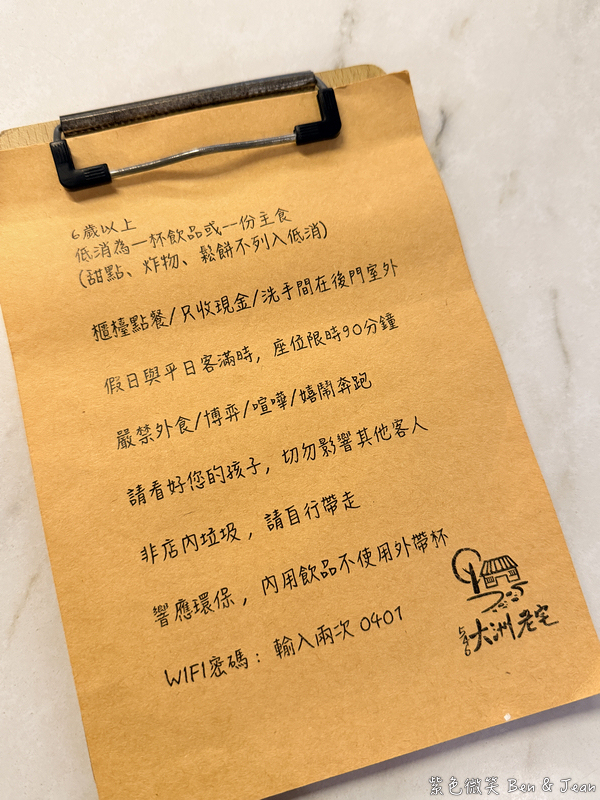 6歲以上
低消為一杯飲品或一份主食
(甜點、炸物、鬆餅不列入低消)
櫃檯點餐/只收現金/洗手間在後門室外
假日與平日客滿時, 座位限時90分鐘
嚴禁外食/博弈/喧嘩/嬉鬧奔跑
請看好您的孩子, 切勿影響其他客人
非店內垃圾, 請自行帶走
響應環保, 內用飲品不使用外帶杯
WIFI密碼: 輸入兩次 0401
大洲老宅
紫色微笑 Ben & Jean